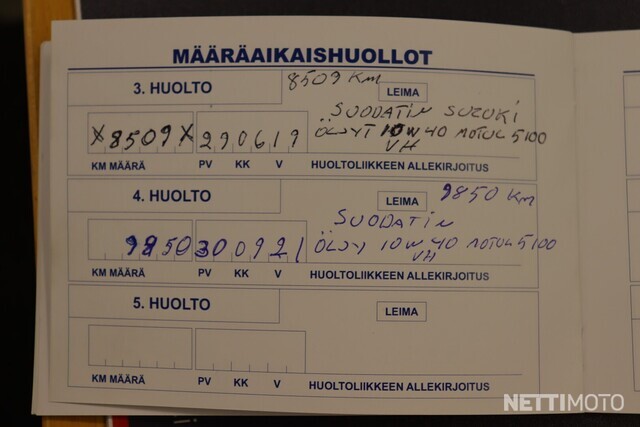 MÄÄRÄAIKAISHUOLLOT
3. HUOLTO 8509 KM LEIMA
SUODATIN SUZUKI
X8509X 290619 ÖLJYT 10W40 MOTUL 5100
VH
KM MÄÄRÄ PV KK V HUOLTOLIIKKEEN ALLEKIRJOITUS
4. HUOLTO LEIMA 9850 KM
SUODATIN
9850 300921 ÖLJYT 10W40 MOTUL 5100
VH
KM MÄÄRÄ PV KK V HUOLTOLIIKKEEN ALLEKIRJOITUS
5. HUOLTO LEIMA
KM MÄÄRÄ PV KK V HUOLTOLIIKKEEN ALLEKIRJOITUS
NETTIMOTO